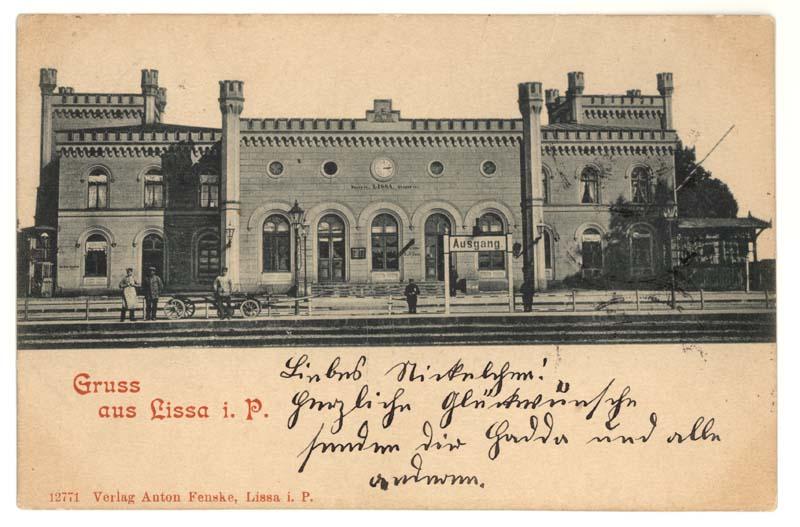 LISSA.
Ausgang
Gruss
aus Lissa i. P.
Liebes Nickelchen!
Herzliche Glückwünsche
senden dir Hadda und alle
anderen.
12771 Verlag Anton Fenske, Lissa i. P.